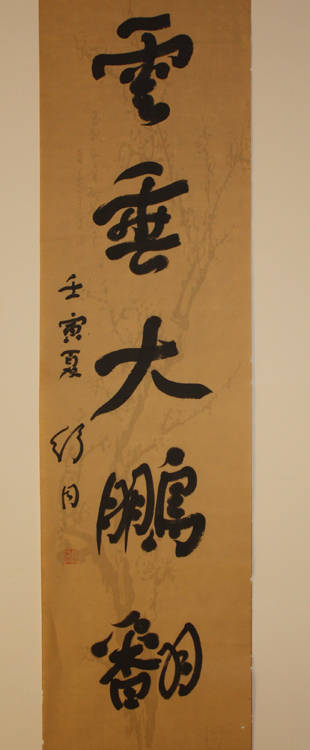 雲垂大鵬翻
壬寅夏
舒同